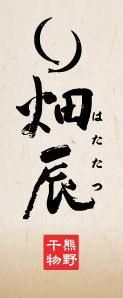 畑辰
はたたつ
熊野
干物